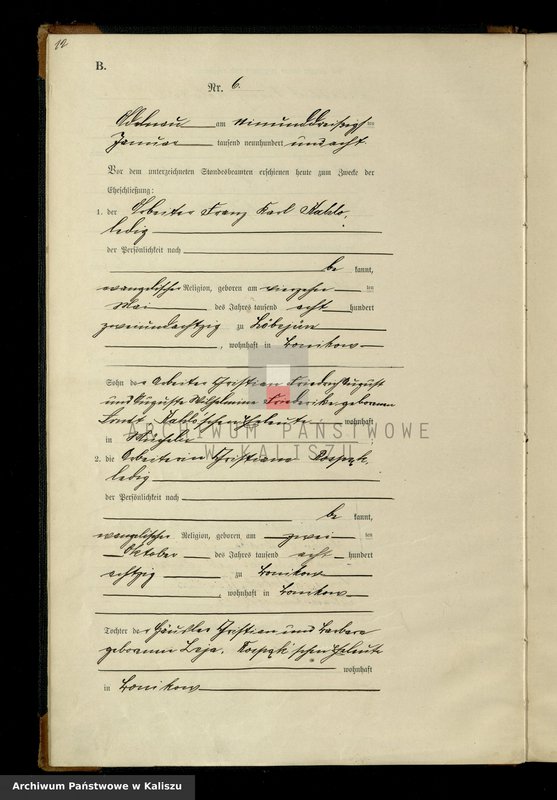 12
B.
Nr. 6.
Adelnau am einunddreißigsten
Januar tausend neunhundert und acht.
Vor dem unterzeichneten Standesbeamten erschienen heute zum Zwecke der
Eheschließung:
1. der Arbeiter Franz Karl
ledig
der Persönlichkeit nach
be kannt,
evangelischer Religion, geboren am vierzehn ten
Mai des Jahres tausend acht hundert
zweiundachtzig zu Löbejün
, wohnhaft in
Sohn des Arbeiter Christian Friedrich August
und Auguste Wilhelmine Friederike geborenen
Eheleute wohnhaft
in
2. die Arbeiterin Christiane
ledig
der Persönlichkeit nach
be kannt,
evangelischer Religion, geboren am zwei ten
Oktober des Jahres tausend acht hundert
achtzig zu
, wohnhaft in
Tochter der Häusler Christian und Barbara
geborenen schen Eheleute
wohnhaft
in
ARCHIWUM PAŃSTWOWE
W KALISZU
Archiwum Państwowe w Kaliszu